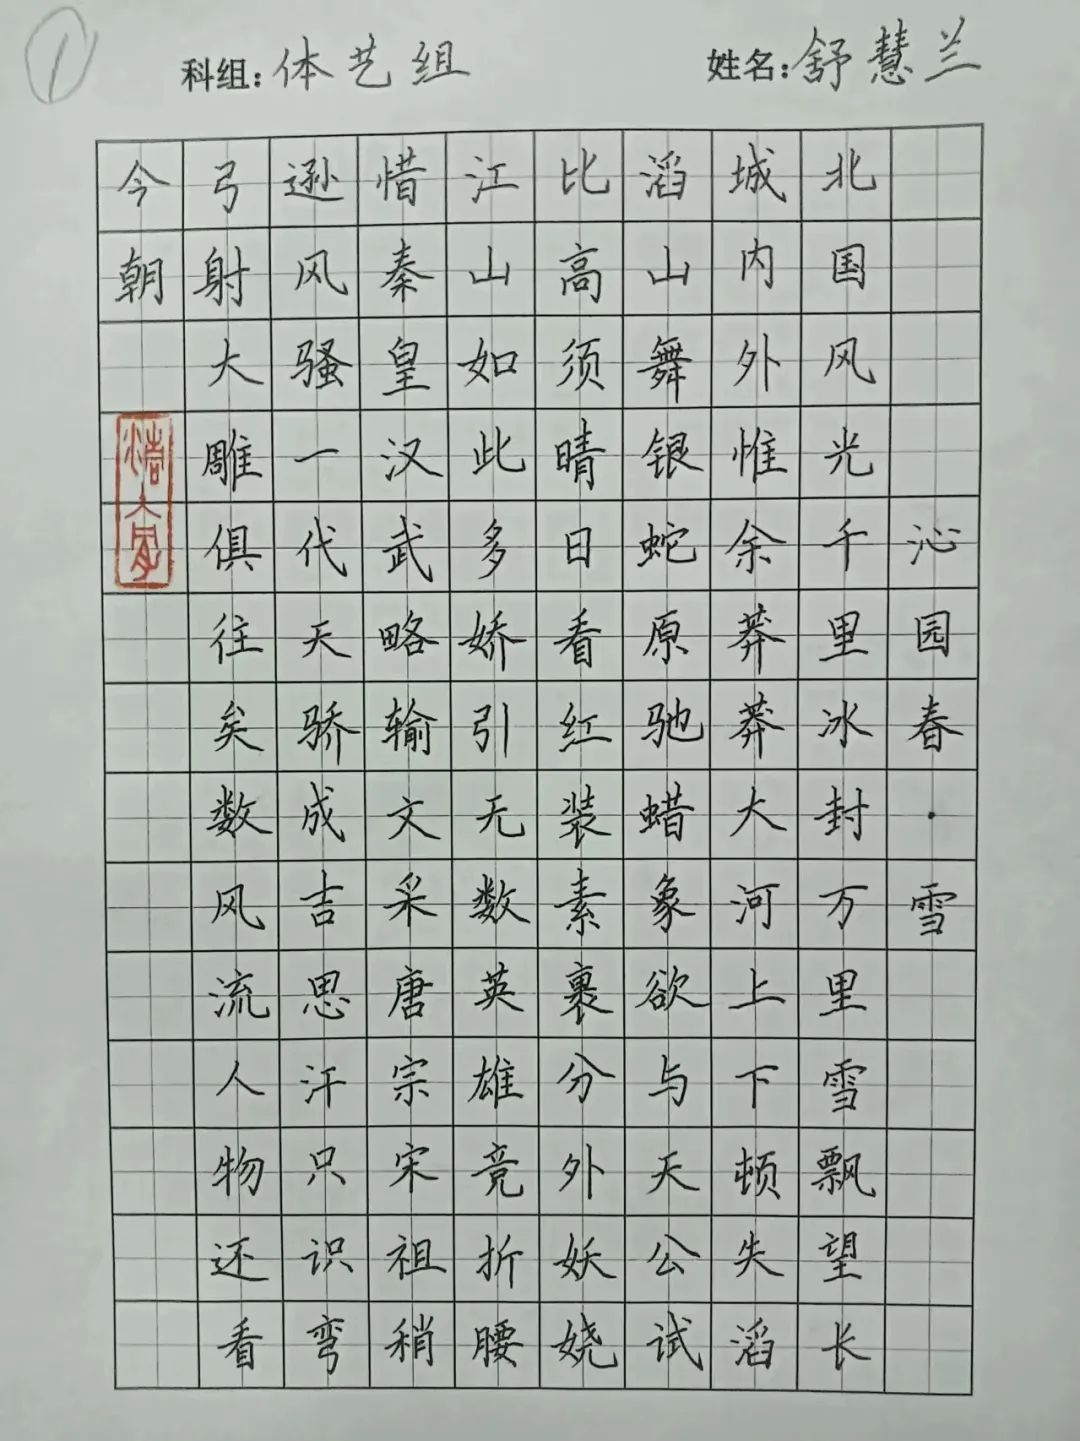 ①
科组:体艺组
姓名:舒慧兰
沁园春·雪
北国风光千里冰封万里雪飘望长
城内外惟余莽莽大河上下顿失滔
滔山舞银蛇原驰蜡象欲与天公试
比高须晴日看红装素裹分外妖娆
江山如此多娇引无数英雄竟折腰
惜秦皇汉武略输文采唐宗宋祖稍
逊风骚一代天骄成吉思汗只识弯
弓射大雕俱往矣数风流人物还看
今朝